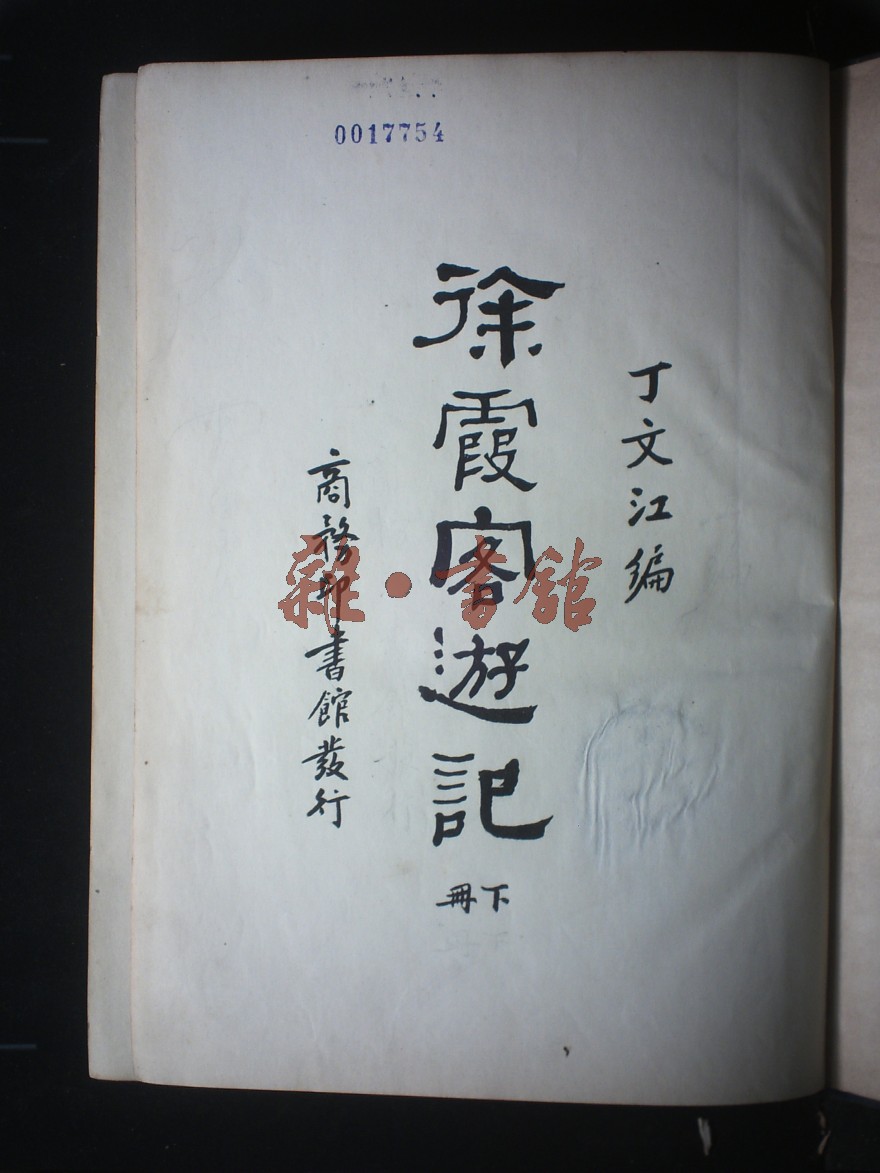 0017754
丁文江編
徐霞客遊記
下冊
商務印書館發行
雜·書館